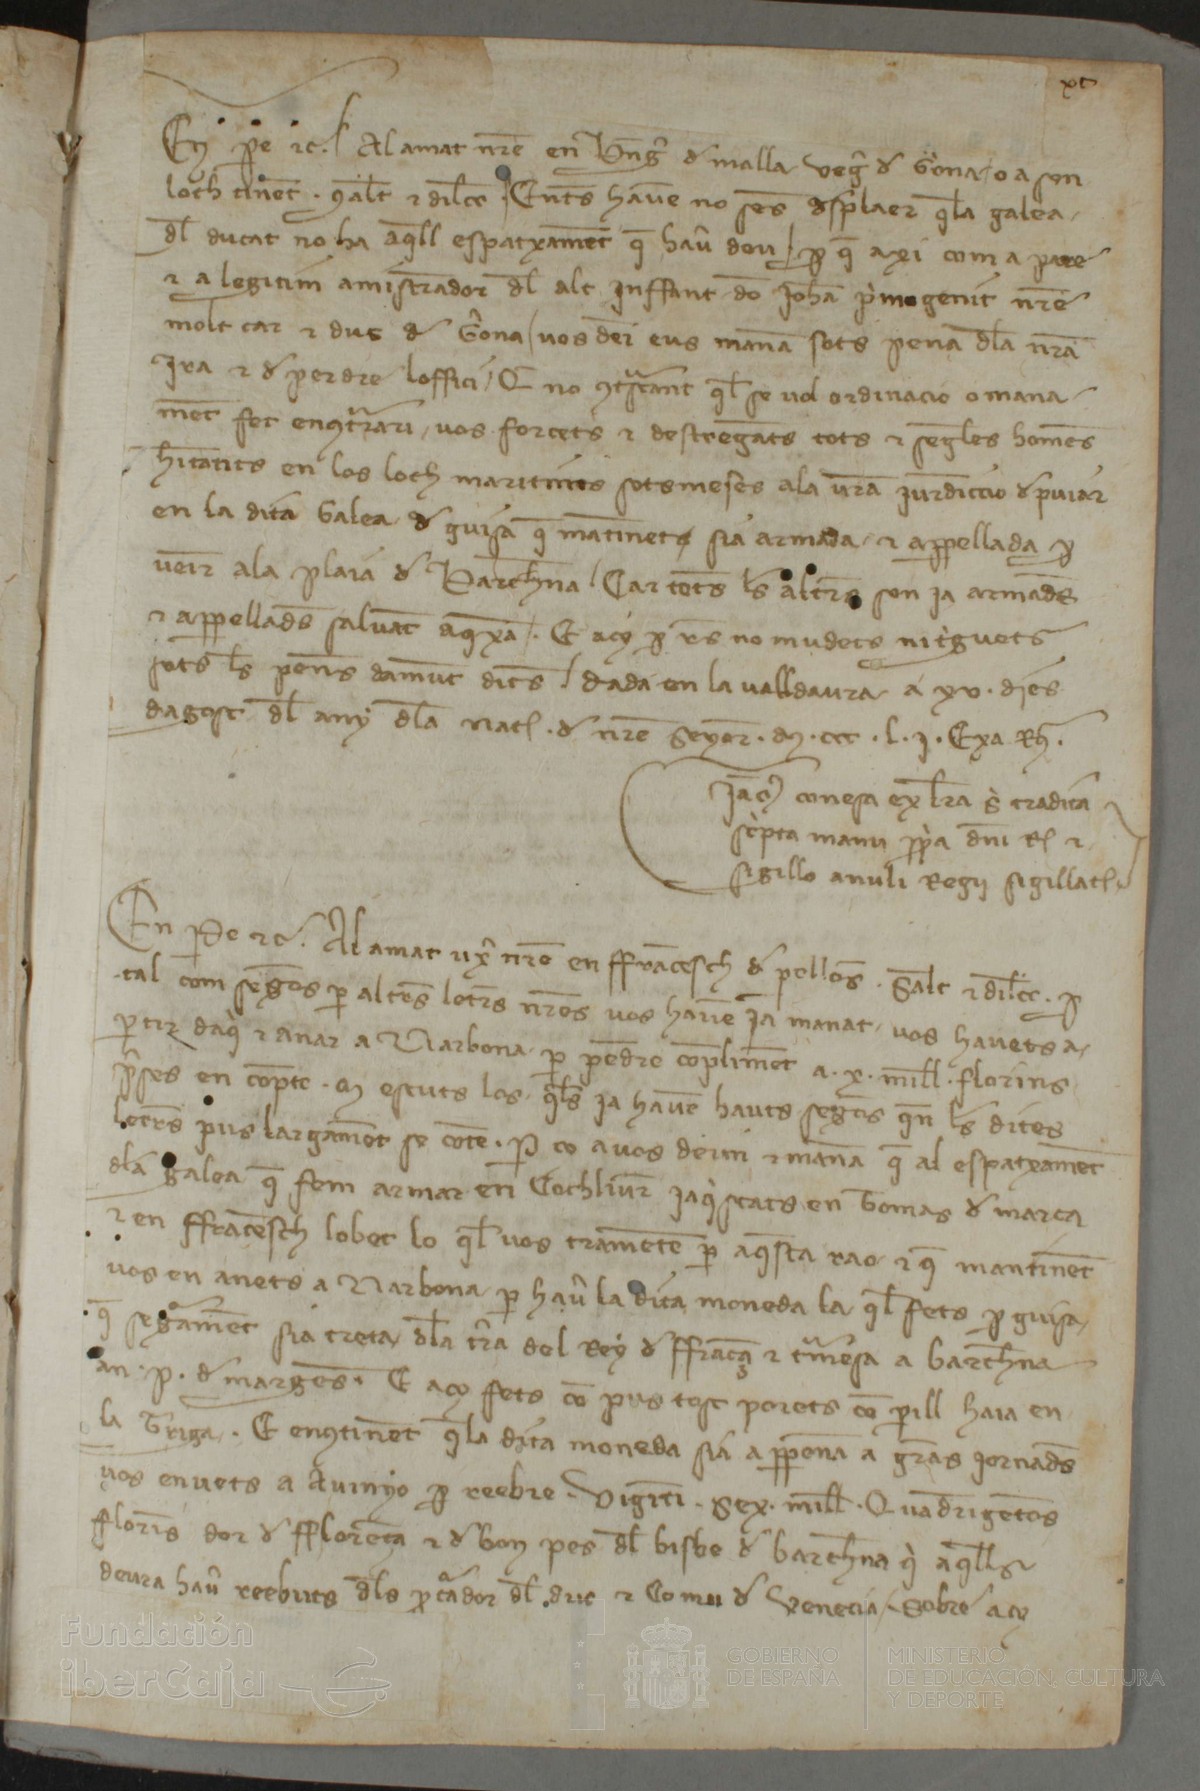 xc
En P̱e ⁊c̃. Al amat nr̃e en Bñg̃ ď malla veg̃ ď Gĩona o a son
loch tinẽt . q̃alt ⁊ dilc̃c̃ . Entẽs havẽ no sẽs ďsplaer q̃la galea
dl̃ ducat no ha aq̃ll espatxamẽt q̃ hau̾ deu / ꝑ q̃ axi com a pare
⁊ a legitim amiñstrador dl̃ alt Inffant dõ Joh̃a p̾mogenit nr̃e
molt car ⁊ duc ď Gĩona / vos deĩ eus manã sots pena dl̃a nr̃a
Ira ⁊ ď perdre loffici / E no ꝯtrastant q̃l se vol ordinacio o mana
mẽt fet enꝯtrari , vos forcets ⁊ destrẽgats tots ⁊ sẽgles homẽs
hĩtants en los loch maritims sotsmeses ala vr̃a jurdiccio ď puiar
en la dita Galea ď guisa q̃ mãtinent sia armada ⁊ appellada ꝑ
venir ala plaia ď Barch̃na / Car totẽs l̃s altr̃s son ja armadẽs
⁊ appelladẽs salvãt aq̃xa . E acy ꝑ rẽs no mudets nitriguets
sots l̃s penẽs damũt ditẽs . dada en la valldaura a xv . dies
dagost dl̃ any dl̃a nat̃ . ď nr̃e Seyor . M . ccc . l . I . Exa R̃ .
Jaco conesa ex lr̃a s̾ tradita
sc̾pta manu ꝓp̾a dn̄i R̃ ⁊
sigillo anuli Regij sigillat̃
En P̱e ⁊c̃ . Al amat ux̾ nr̃e en ffrãcesch ď pellos . Salt ⁊ dilc̃c̃ . ꝑ
tal com segõs ꝑ altrẽs letrẽs nr̃es vos havẽ Ja manat , vos havets a
ꝑtir daq̾ ⁊ anar a Narbona ꝑ pẽdre cõplimẽt a . x . mill . florins
p̾ses en cõpte . M escuts los q̃ls ja havẽ hauts segõs q̃n l̃s dites
letrẽs pus largamẽt se cõte . ꝑ ço a vos deim ⁊ manã q̃ al espatxamẽt
dl̃a galea q̃ fem armar en Cochliur̃ jaq̾scats en Tomas ď marca
⁊ en ffrãcesch lobet lo q̃l vos trametẽ ꝑ aq̃sta rao ⁊ q̃ mantinẽt
vos en anets a Narbona ꝑ hau̾ la dita moneda la q̃l fets ꝑ guisa
q̃ segramẽt sia treta dl̃a tr̃a del Rey ď ffrãça ⁊ tm̃esa a barch̃na
an . p . ď margẽs . E acy fets cõ pus tost porets cõ ꝑill haia en
la triga . E enꝯtinẽt q̃la dita moneda sia appenã a grãs jornadẽs
vos en vets a Avinyo ꝑ reebre . Viginti . Sex . mill . Quadrigẽtos
florĩs dor ď fflorẽça ⁊ ď bon pes dl̃ bisbe ď barch̃na q̾ aq̃lls
deura hau̾ reebuts dl̃s ꝓcrãdor dl̃ duc ⁊ Comũ ď Venecia / Sobre acy
Fundación
iberCaja
GOBIERNO
DE ESPAÑA
MINISTERIO
DE EDUCACIÓN, CULTURA
Y DEPORTE